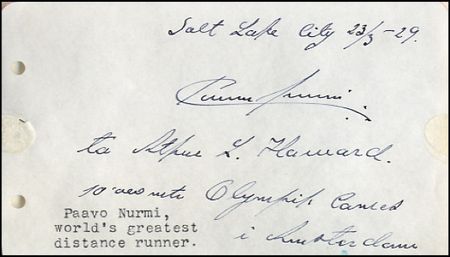 Salt Lake City 23/3-29.
Paavo Nurmi
to L. Haward.
Olympik Games
i Amsterdam
Paavo Nurmi,
world's greatest
distance runner.